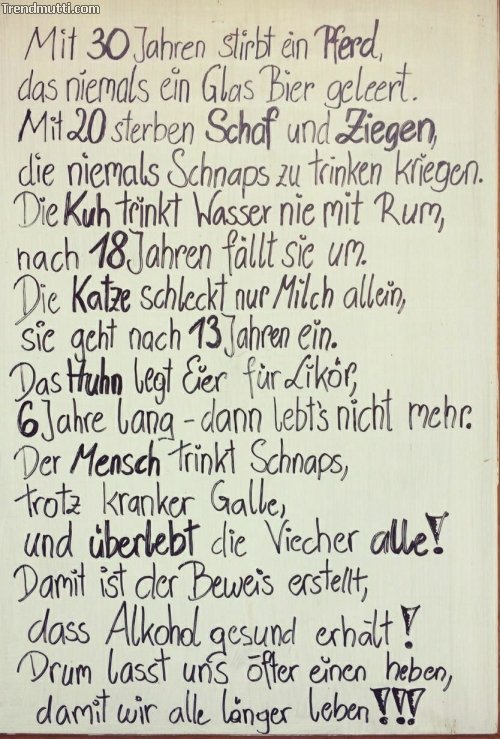 Trendmutti.com
Mit 30 Jahren stirbt ein Pferd,
das niemals ein Glas Bier geleert.
Mit 20 sterben Schaf und Ziegen,
die niemals Schnaps zu trinken kriegen.
Die Kuh trinkt Wasser nie mit Rum,
nach 18 Jahren fällt sie um.
Die Katze schleckt nur Milch allein,
sie geht nach 13 Jahren ein.
Das Huhn legt Eier für Likör,
6 Jahre lang - dann lebt's nicht mehr.
Der Mensch trinkt Schnaps,
trotz kranker Galle,
und überlebt die Viecher alle!
Damit ist der Beweis erstellt,
dass Alkohol gesund erhält!
Drum lasst uns öfter einen heben,
damit wir alle länger leben!!!